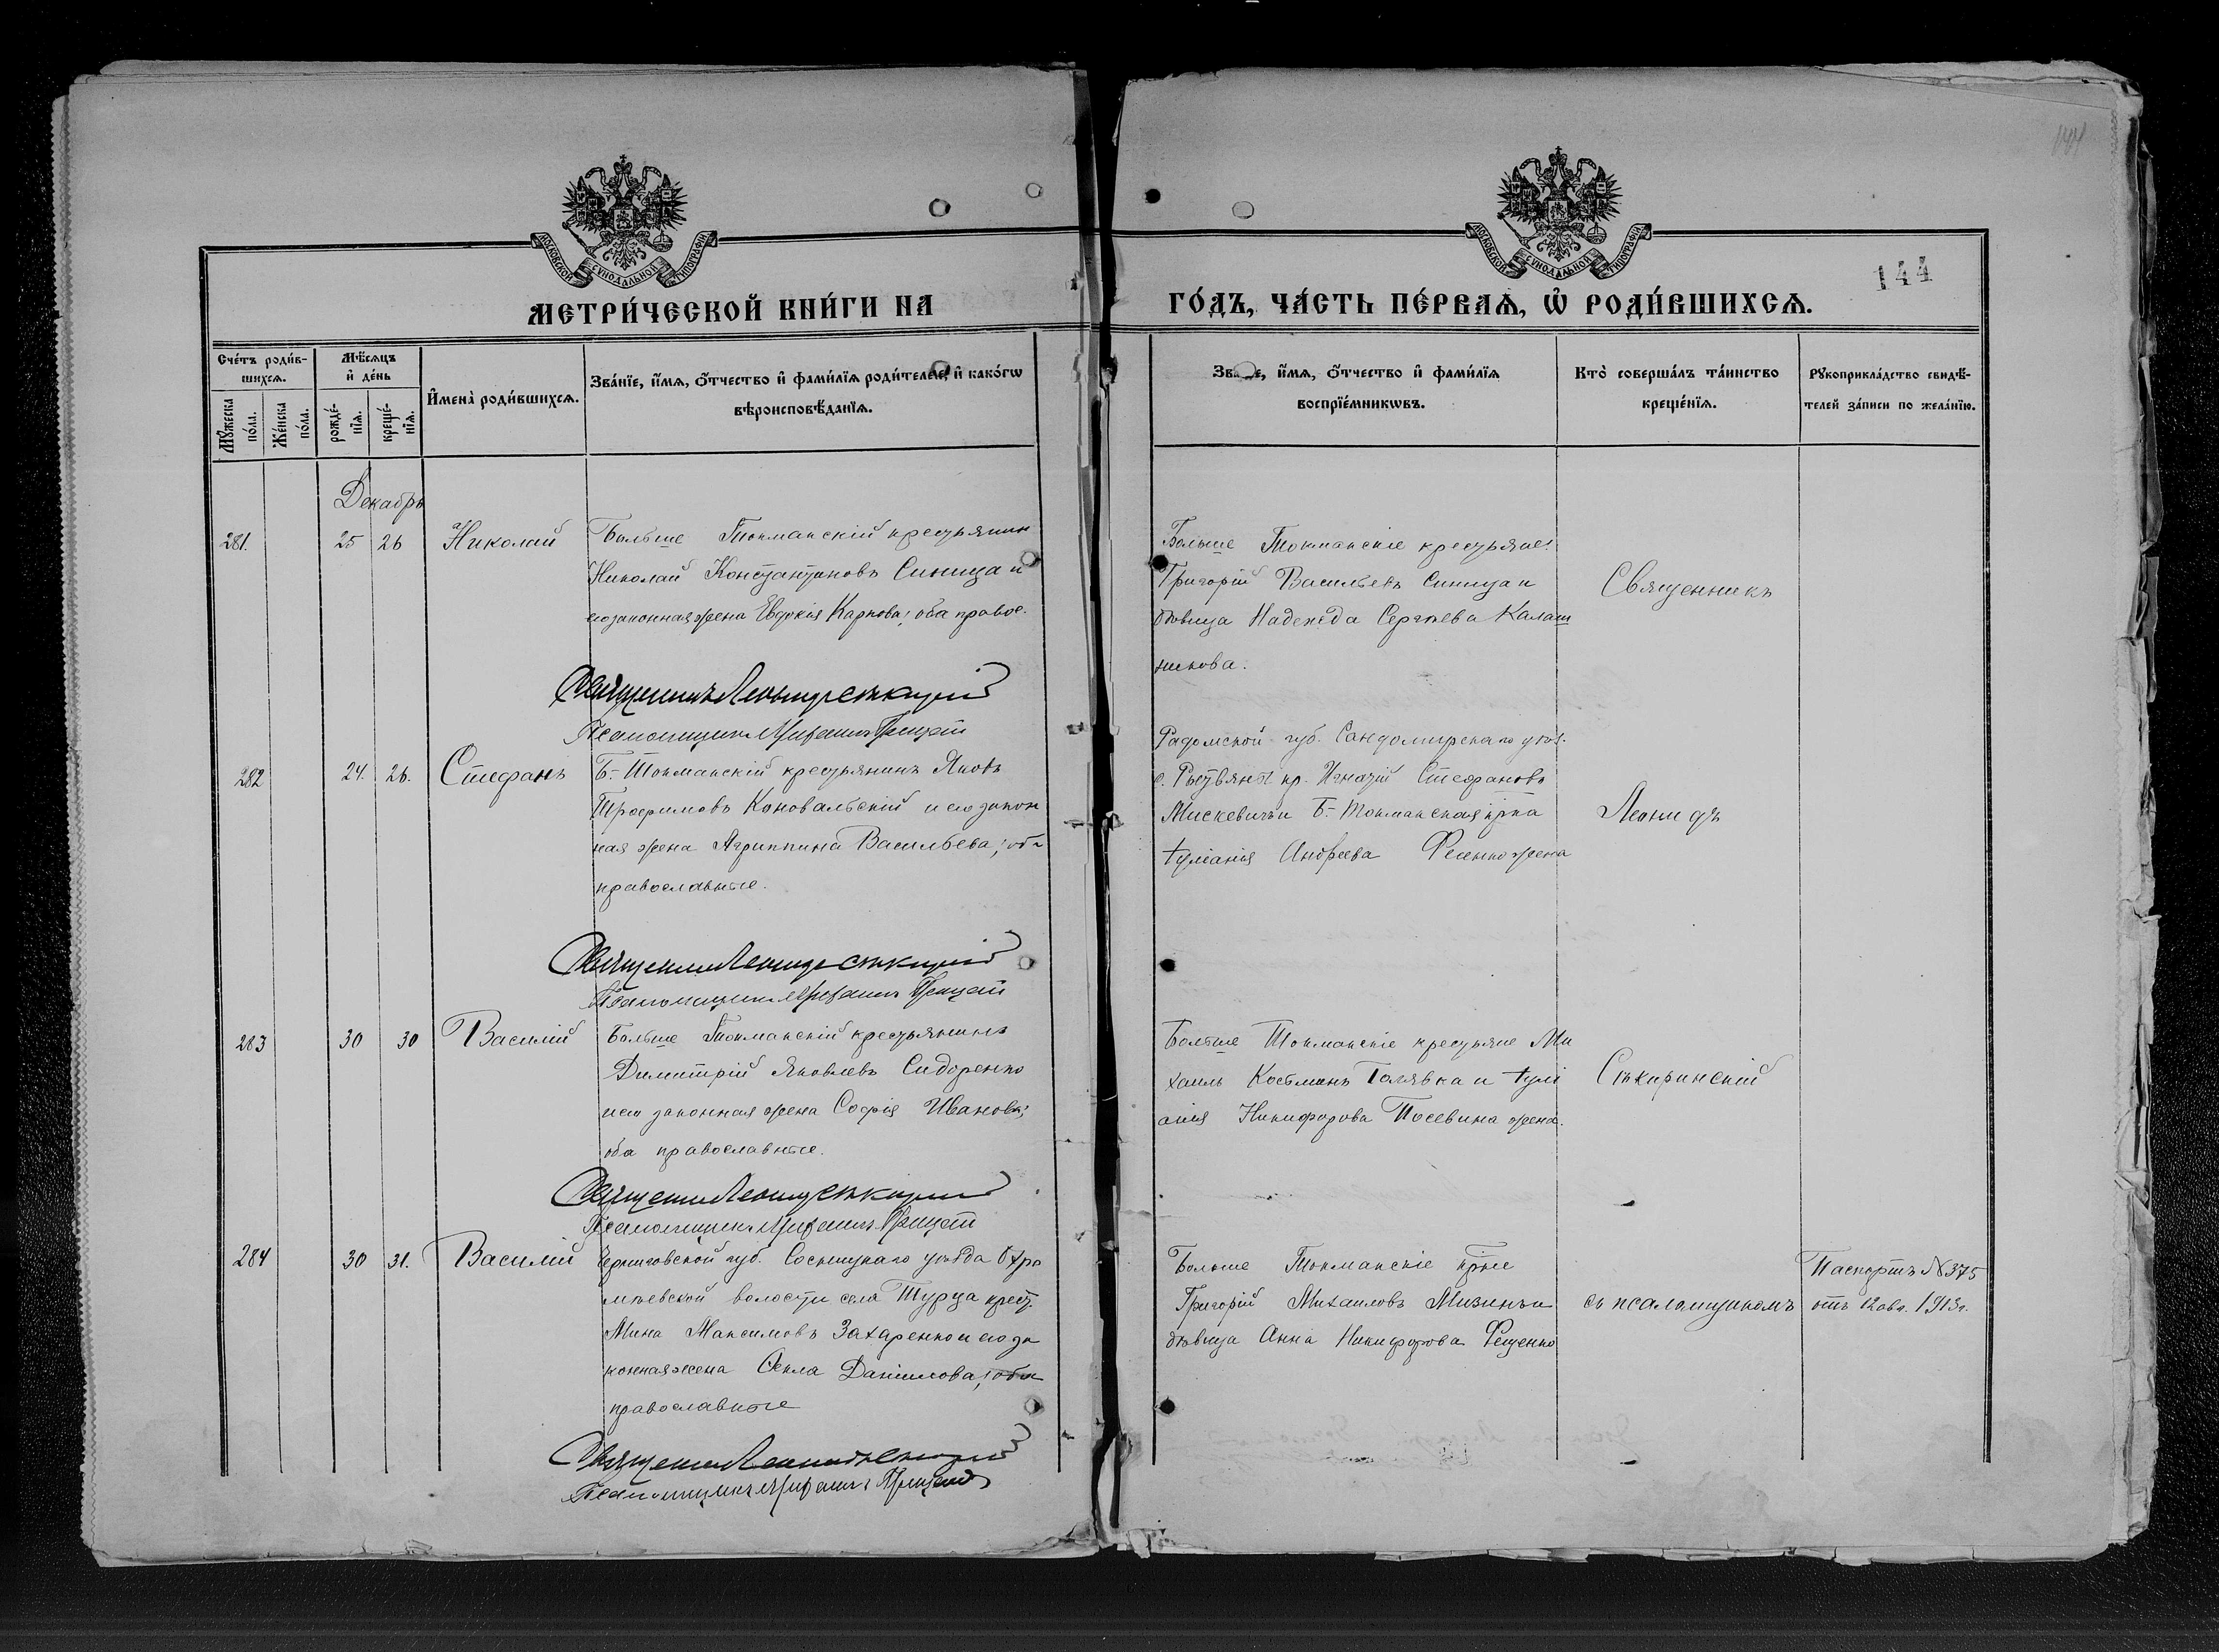 144
МОСКОВСКОЙ СУНОДАЛЬНОЙ ТИПОГРАФИИ
МОСКОВСКОЙ СУНОДАЛЬНОЙ ТИПОГРАФИИ
144
МЕТРИ́ЧЕСКОЙ КНИ́ГИ НА
ГО́ДЪ, ЧА́СТЬ ПЕ́РВАѦ, Ѡ҆ РОДИ́ВШИХСѦ.
Сче́тъ роди́в-
шихсѧ.
Мѣ́сѧцъ
и҆ де́нь
И҆мена̀ роди́вшихсѧ.
Зва́нїе, и҆́мѧ, ѻ҆́тчество и҆ фами́лїѧ роди́телей, и҆ како́гѡ
вѣроисповѣ́данїѧ.
Мꙋ́жеска
по́ла.
Же́нска
по́ла.
рожде́-
нїѧ.
креще́-
нїѧ.
Зва́нїе, и҆́мѧ, ѻ҆́тчество и҆ фами́лїѧ
воспрїе́мникѡвъ.
Кто̀ соверша́лъ та́инство
креще́нїѧ.
Рꙋкоприкла́дство свидѣ́-
телей за́писи по жела́нїю.
Декабрь
281. 25 26 Николай Больше Токмакскій крестьянин
Николай Константиновъ Синица и
его законная жена Евдокія Карпова; оба правос.
Священникъ Леонидъ Сткиринскій
Псаломщикъ Грицай
Больше Токмакскіе крестьяне:
Григорій Васильевъ Синица и
дѣвица Надежда Сергѣева Калаш
никова.
Священникъ
282 24. 26. Стефанъ Б.-Токмакскій крестьянинъ Яковъ
Трофимовъ Коновальскій и его закон
ная жена Агриппина Васильева; оба
православные.
Священникъ Леонидъ Сткиринскій
Псаломщикъ Грицай
Радомской губ. Сандомирскаго уѣз.
кр. Игнатій Стефановъ
Мискевичъ и Б.-Токмакская крка
Іуліанія Андреева Фесенко жена
Леонидъ
283 30 30 Василій Больше Токмакскій крестьянинъ
Димитрій Яковлевъ Сидоренко
и его законная жена Софія Иванова;
оба православные.
Священникъ Леонидъ Сткиринскій
Псаломщикъ Грицай
Больше Токмакскіе крестьяне Ми
хаилъ Косьминъ Голявка и Іулі
анія Никифорова Посевина жена.
Сткиринскій
284 30 31. Василій Черниговской губ. Сосницкаго уѣзда Охра
міевской волости села Турца крест.
Мина Максимовъ Захаренко и его за
конная жена Ѳекла Даніилова; оба
православные
Священникъ Леонидъ Сткиринскій
Псаломщикъ Грицай
Больше Токмакскіе крне
Григорій Михаиловъ Мизинъ и
дѣвица Анна Никифорова Фещенко
съ псаломщикомъ
Паспортъ №375
отъ 12 авг. 1913г.